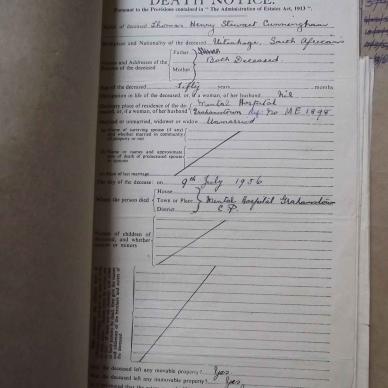 DEATH NOTICE.
Pursuant to the Provisions contained in "The Administration of Estates Act, 1913".
of deceased Thomas Henry Stewart Cunningham
and Nationality of the deceased Uitenhage, South African
Father
Names and Addresses of the Both Deceased
of the deceased Mother
of the deceased Fifty years months
in life of the deceased, or, if a woman, of her husband Nil
place of residence of the Mental Hospital
or, if a woman, of her husband Grahamstown Ref: No ME 1898
or unmarried, widower or widow Unmarried
Name of surviving spouse (if any)
and whether married in community
of property or not
Name or names and approximate
date of death of predeceased spouse
or spouses
of last marriage
The day of the decease: on 9th July 1956
House
Where the person died Town or Place Mental Hospital Grahamstown
District C.P.
of children of
deceased, and whether
or minors
the deceased left any movable property? Yes
the deceased left any immovable property? Yes.